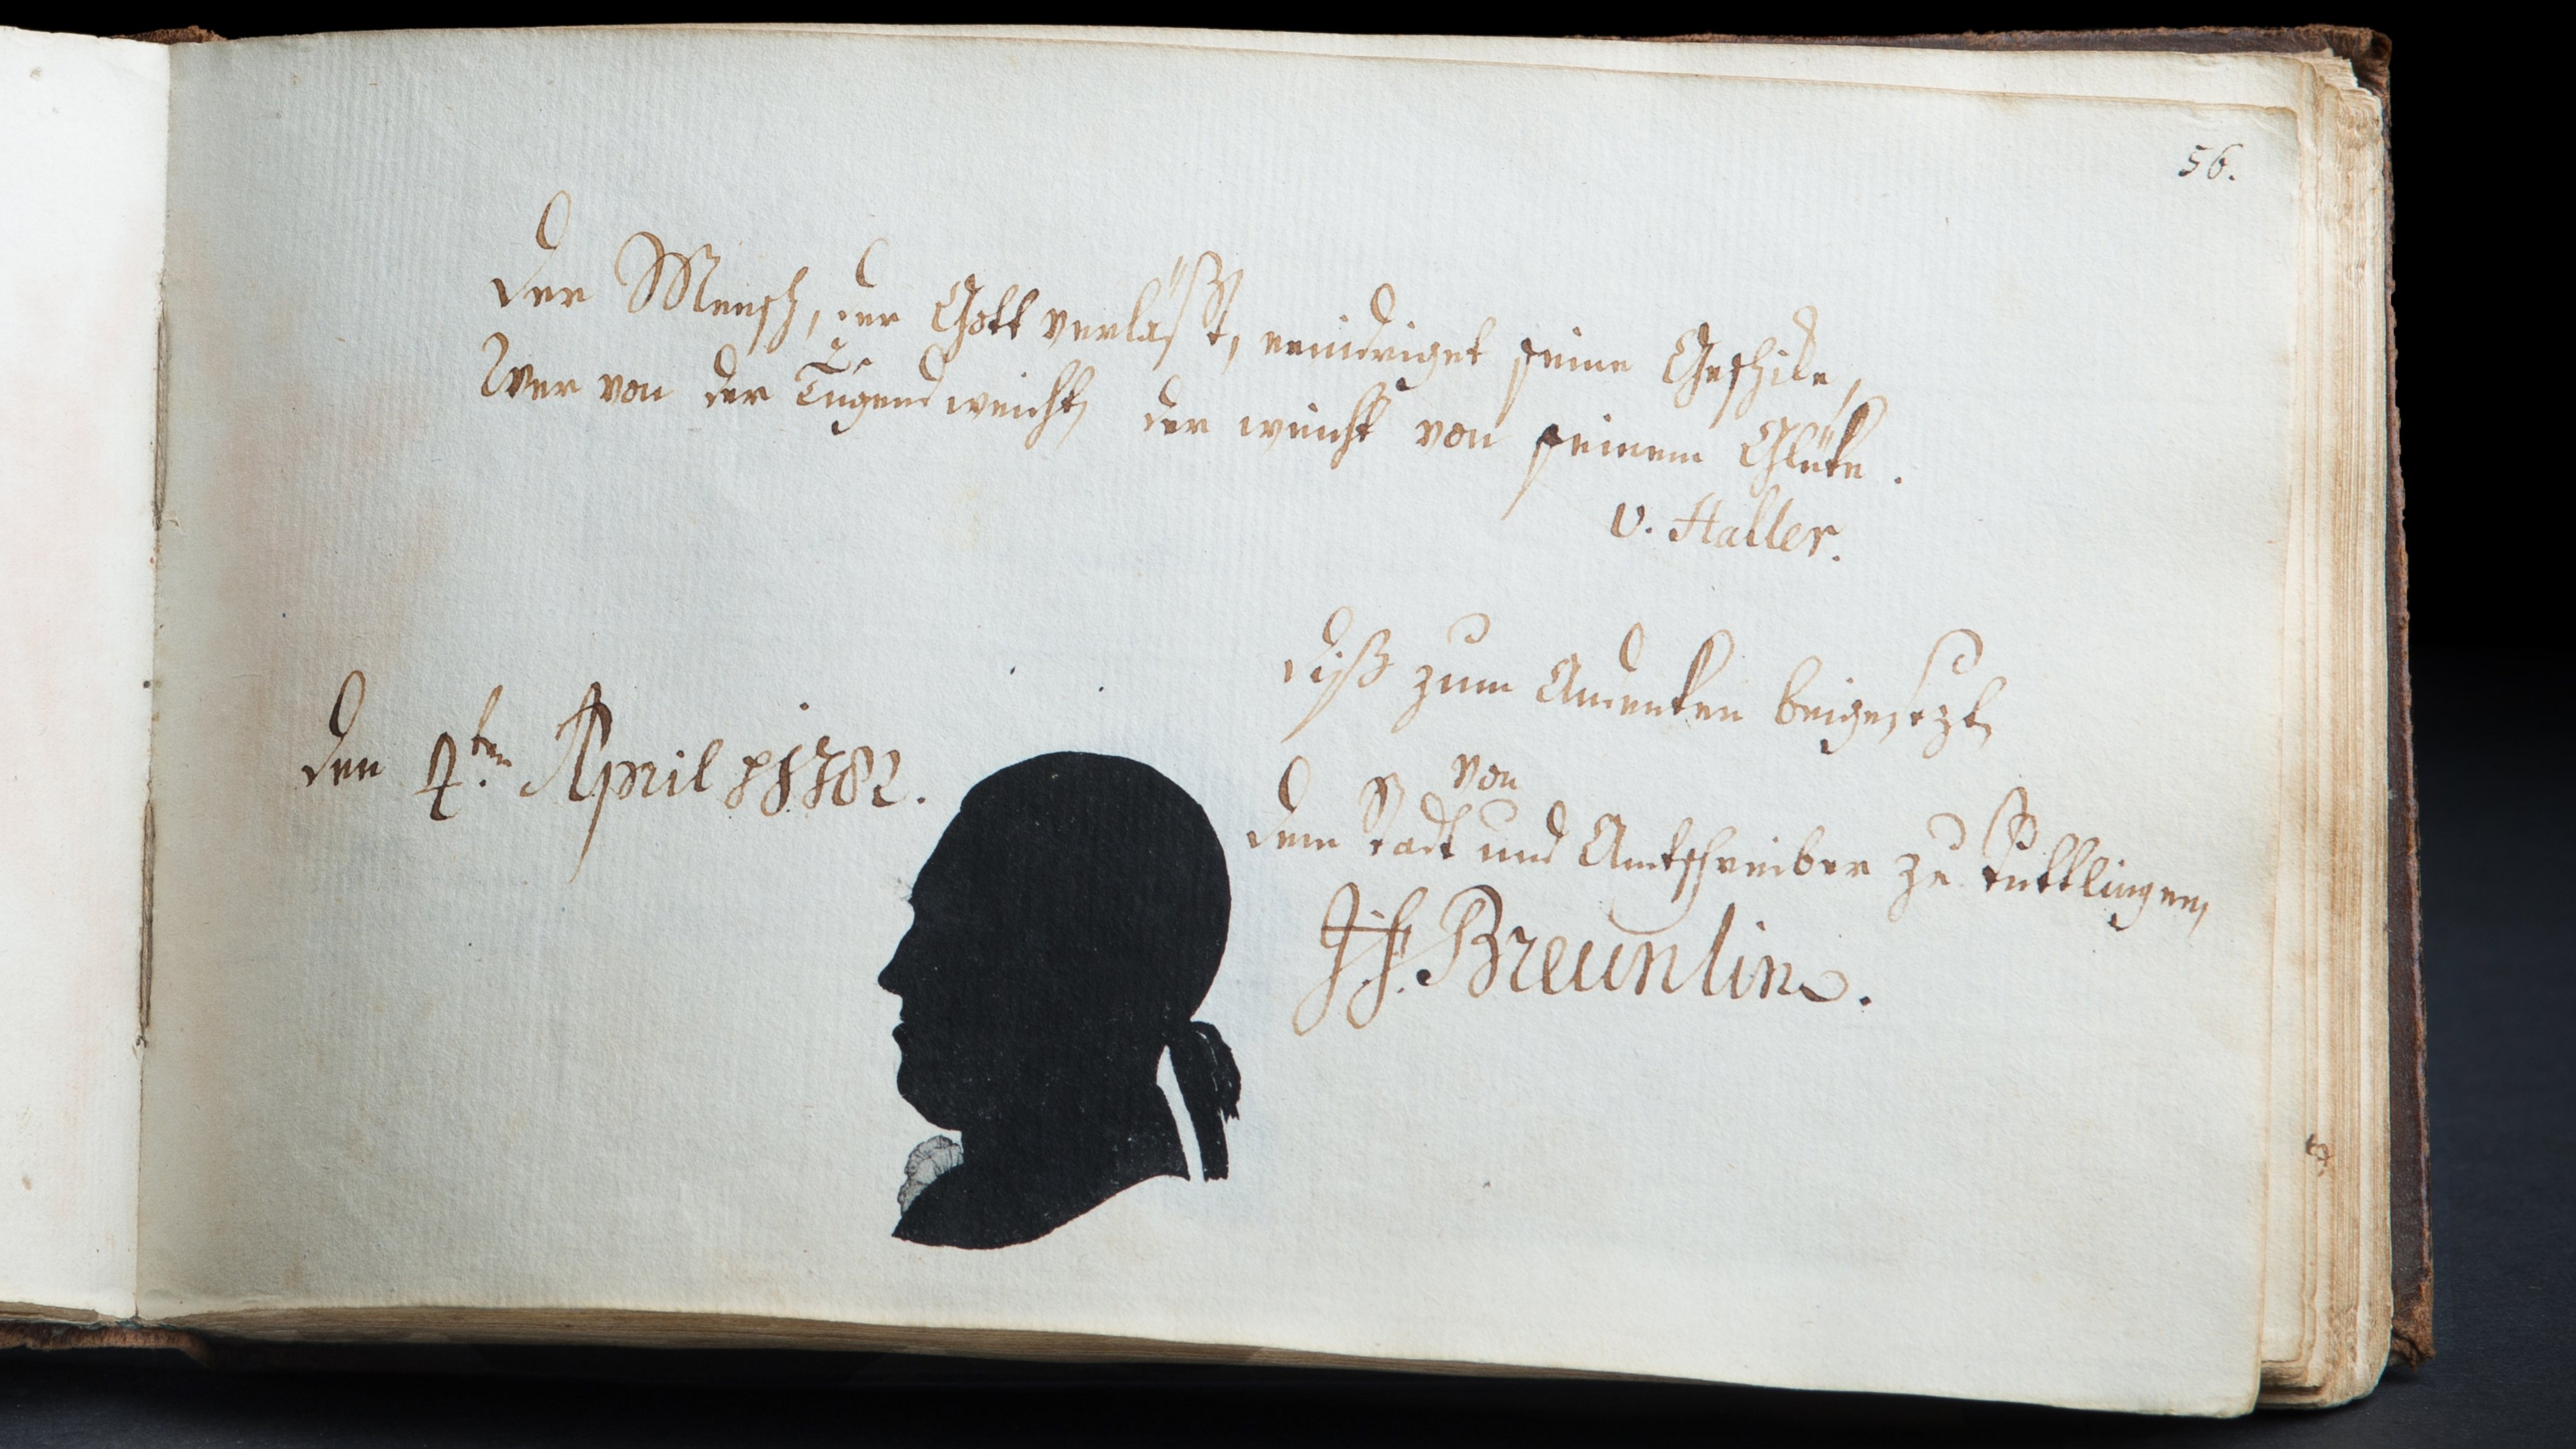 56.
Der Mensch, der Gott verläßt, erniedriget seine Geschike,
Wer von der Tugend weicht, der weicht von seinem Glüke.
v. Haller.
Diß zum Andenken beigesezt,
von
Den 4.ten April 1782.
dem Stadt und Amtschreiber zu Tuttlingen,
Breunlin.